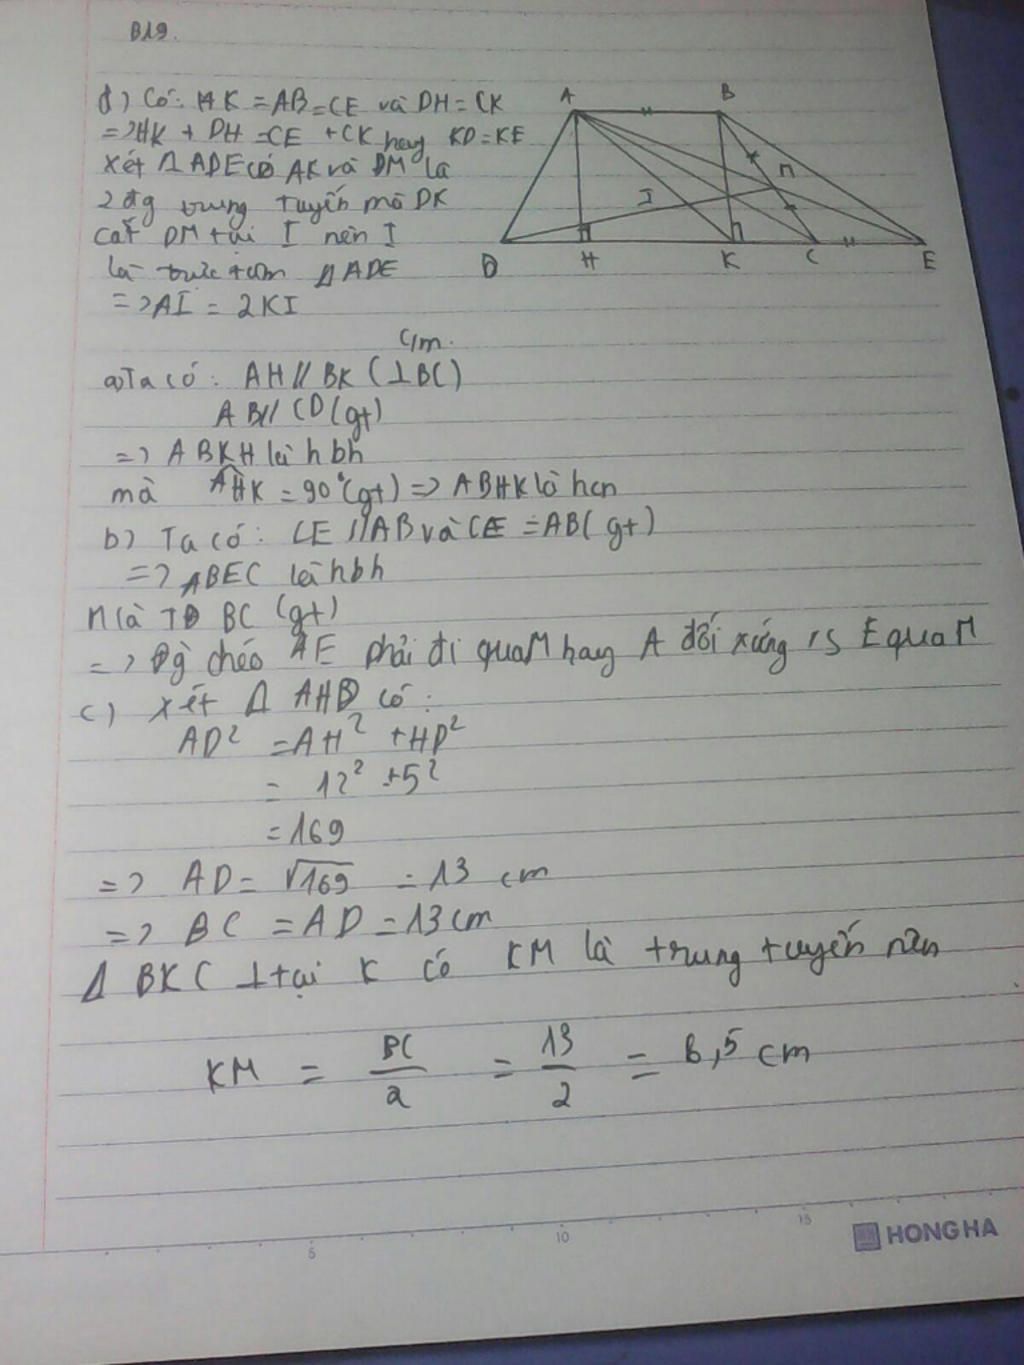 B19.
d) Có: HK = AB = CE và DH = CK
=> HK + DH = CE + CK hay KD = KE
Xét Δ ADE có AK và DM là
2 đg trung tuyến mà DK
cắt DM tại I nên I
là trực tâm Δ ADE
=> AI = 2KI
A
B
M
I
D
H
K
C
E
C/m.
a) Ta có: AH // BK (⊥ BC)
AB // CD (gt)
=> ABKH là hbh
mà AHK = 90° (gt) => ABHK là hcn
b) Ta có: CE // AB và CE = AB (gt)
=> ABEC là hbh
M là TĐ BC (gt)
=> Đg chéo AE phải đi qua M hay A đối xứng vs E qua M
c) Xét Δ AHD có:
AD² = AH² + HD²
= 12² + 5²
= 169
=> AD = √169 = 13 cm
=> BC = AD = 13 cm
Δ BKC ⊥ tại K có KM là trung tuyến nên
KM = BC/2 = 13/2 = 6,5 cm
5 10 15
HONG HA